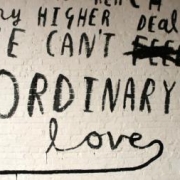 REACH
ny HIGHER Deal
E CAN'T
ORDINARY
love